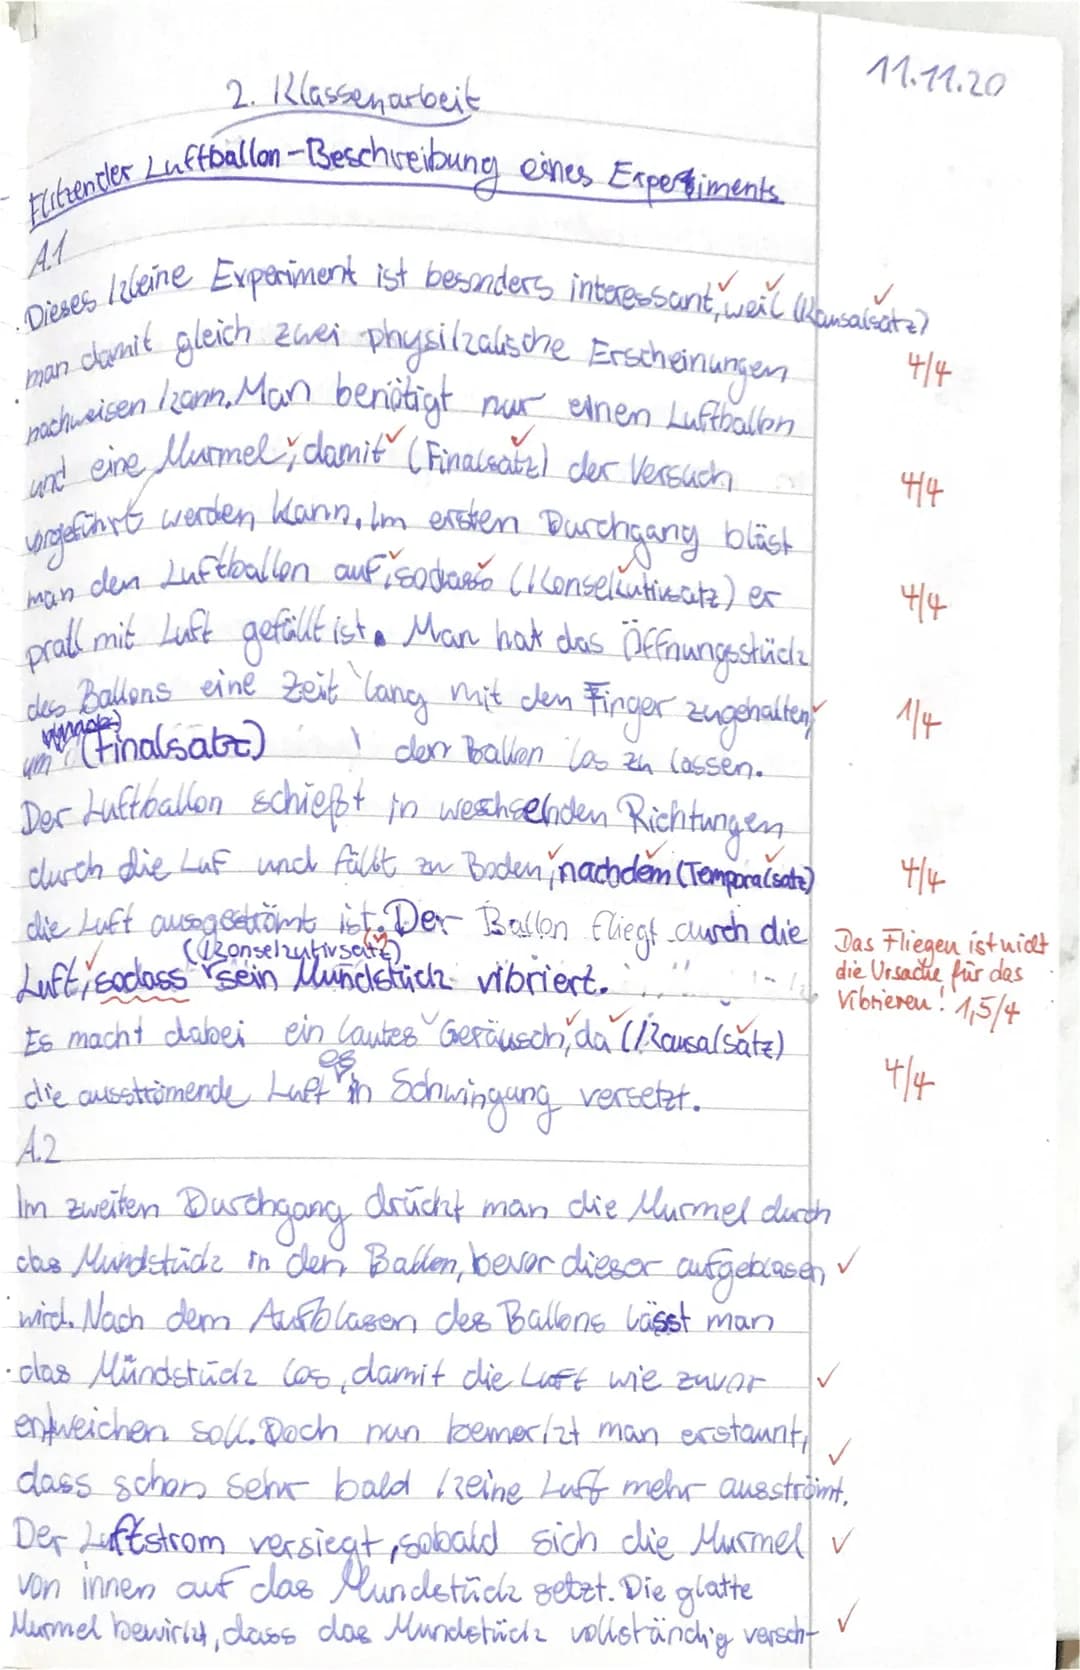 11.11.20
2. Klassenarbeit
Flitzender Luftballon - Beschreibung eines Experiments
A.1
Dieses kleine Experiment ist besonders interessant, weil (Kausalsatz)
man damit gleich zwei physikalische Erscheinungen 4/4
nachweisen kann. Man benötigt nur einen Luftballon
und eine Murmel, damit (Finalsatz) der Versuch 4/4
vorgeführt werden kann. Im ersten Durchgang bläst
man den Luftballon auf, sodass (Konsekutivsatz) er 4/4
prall mit Luft gefüllt ist. Man hat das Öffnungsstück
des Ballons eine Zeit lang mit den Finger zugehalten, 1/4
um (Finalsatz) den Ballon los zu lassen.
Der Luftballon schießt in weschselnden Richtungen
durch die Luf und fällt zu Boden, nachdem (Temporalsatz) 4/4
die Luft ausgeströmt ist. Der Ballon fliegt durch die
Luft, sodass (Konsekutivsatz) sein Mundstück vibriert.
Das Fliegen ist nicht
die Ursache für das
Vibrieren! 1,5/4
Es macht dabei ein lautes Geräusch, da (Kausalsatz)
die ausströmende Luft es in Schwingung versetzt. 4/4
A.2
Im zweiten Durchgang drückt man die Murmel durch
das Mundstück in den Ballon, bevor dieser aufgeblasen
wird. Nach dem Aufblasen des Ballons lässt man
das Mündstück los, damit die Luft wie zuvor
entweichen soll. Doch nun bemerkt man erstaunt,
dass schon sehr bald keine Luft mehr ausströmt.
Der Luftstrom versiegt, sobald sich die Murmel
von innen auf das Mundstück setzt. Die glatte
Murmel bewirkt, dass das Mundstück vollständig versch-